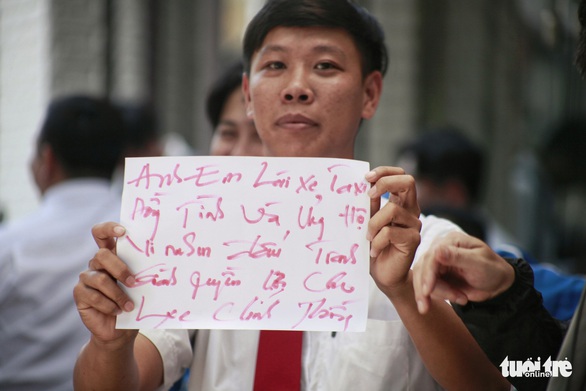 Anh Em Lái Xe Taxi
Đồng Tình Và Ủng Hộ
Vinasun Đấu Tranh
Giành quyền lợi Cho
Chính Đáng
tuổi trẻ
online